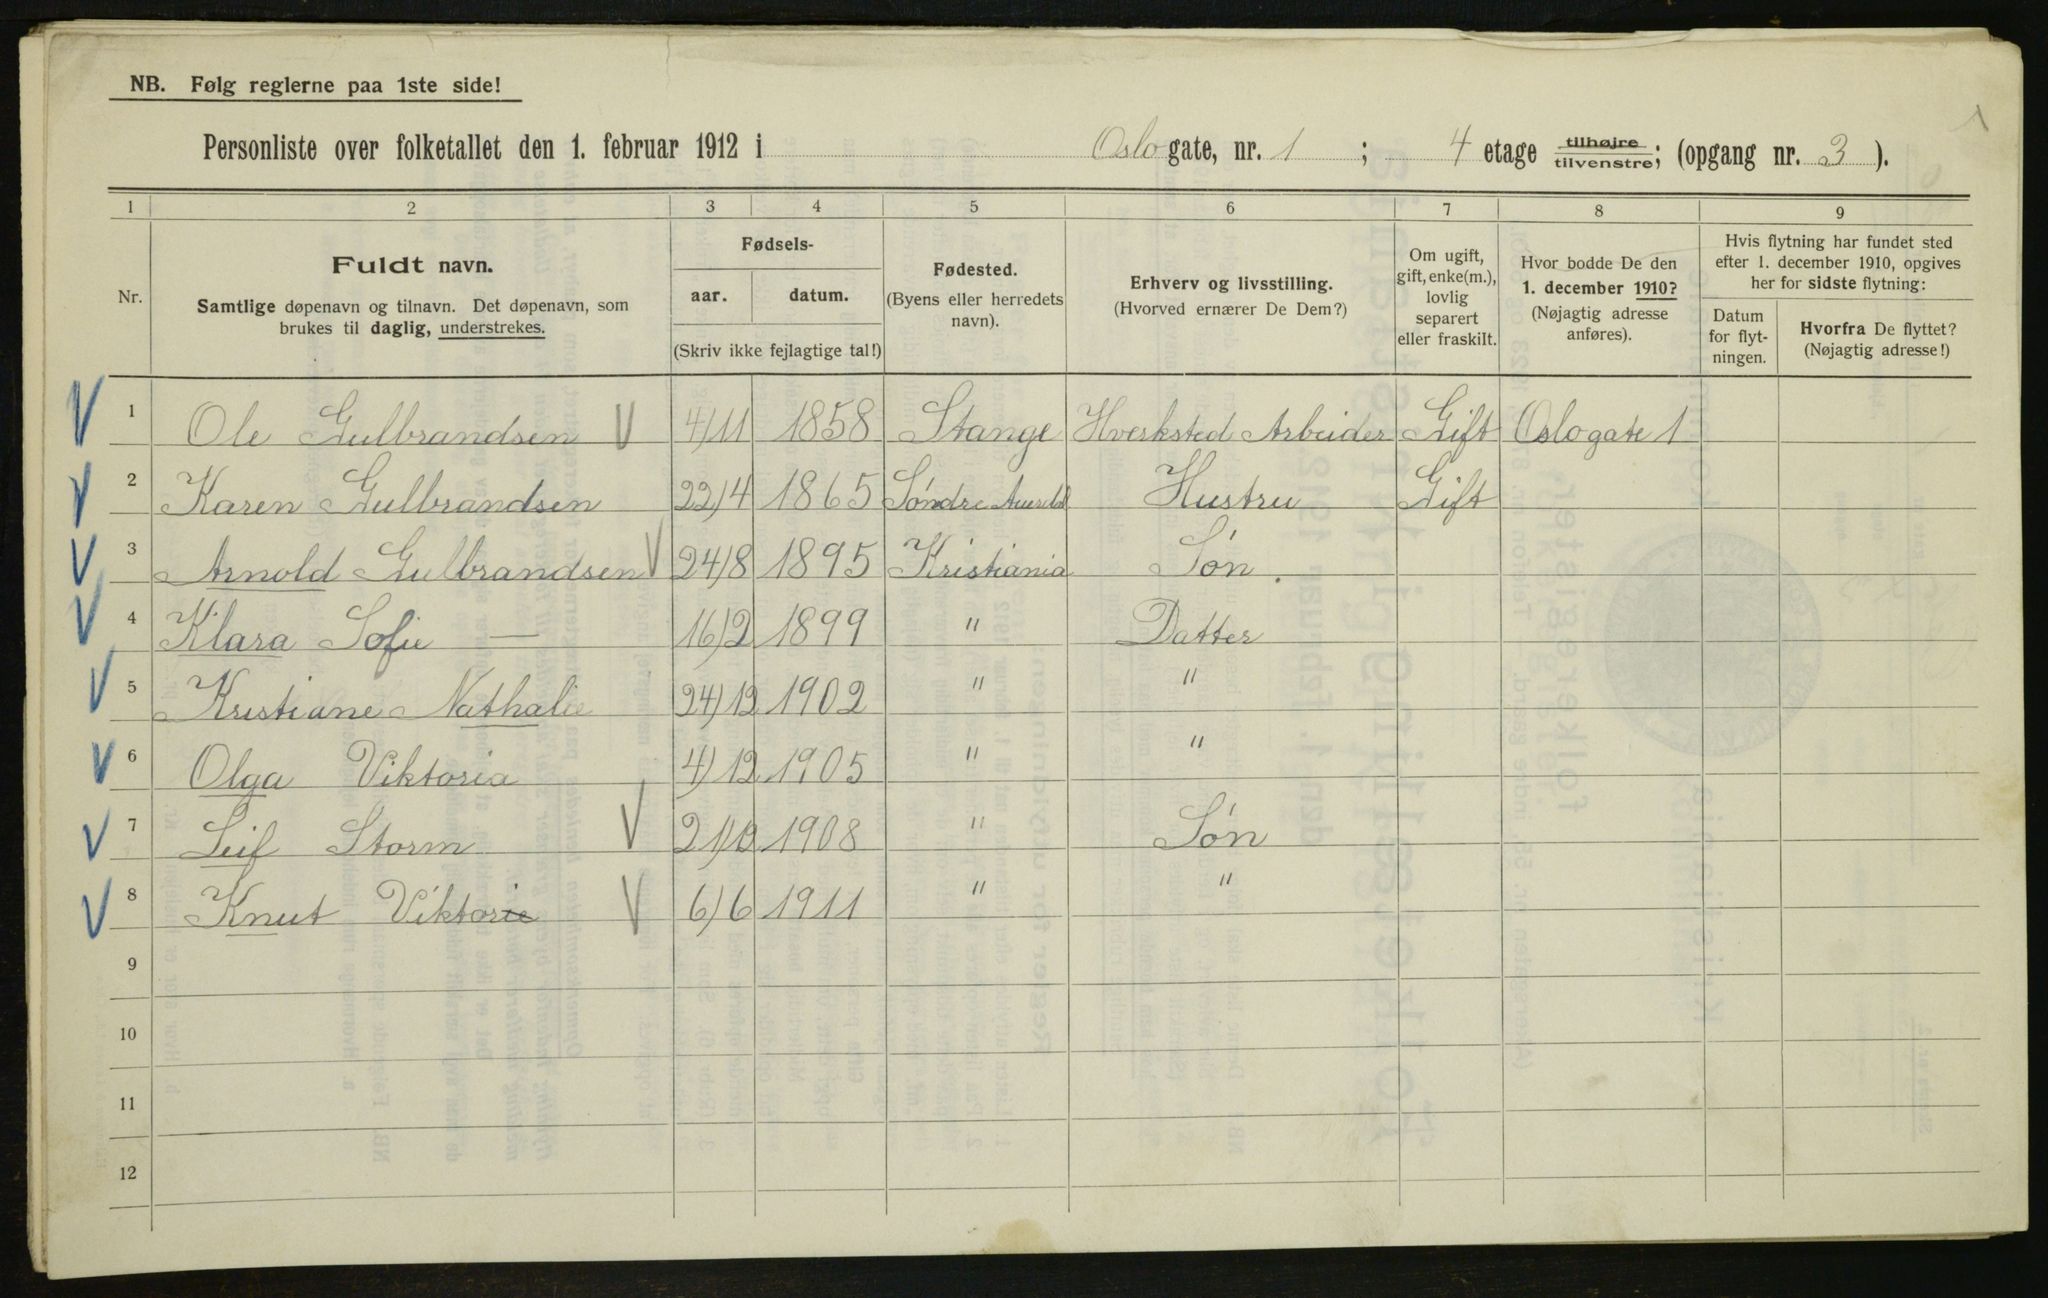 NB. Følg reglerne paa 1ste side!
Personliste over folketallet den 1. februar 1912 i Oslo gate, nr. 1 ; 4 etage tilhøjre/tilvenstre; (opgang nr. 3 ).
1 2 3 4 5 6 7 8 9
Nr.
Fuldt navn.
Samtlige døpenavn og tilnavn. Det døpenavn, som
brukes til daglig, understrekes.
Fødsels-
aar. datum.
(Skriv ikke fejlagtige tal!)
Fødested.
(Byens eller herredets
navn).
Erhverv og livsstilling.
(Hvorved ernærer De Dem?)
Om ugift,
gift, enke(m.),
lovlig
separert
eller fraskilt.
Hvor bodde De den
1. december 1910?
(Nøjagtig adresse
anføres).
Hvis flytning har fundet sted
efter 1. december 1910, opgives
her for sidste flytning:
Datum
for flyt-
ningen.
Hvorfra De flyttet?
(Nøjagtig adresse!)
1 Ole Gulbrandsen 4/11 1858 Stange Arbeider Gift Oslogate 1
2 Karen Gulbrandsen 22/4 1865 Søndre Hustru Gift
3 Arnold Gulbrandsen 24/8 1895 Kristiania Søn.
4 Klara Sofie — 16/2 1899 " Datter
5 Kristiane Nathalie 24/12 1902 " "
6 Olga Viktoria 4/12 1905 " "
7 Leif Storm 1908 " Søn
8 Knut Viktorie 6/6 1911 " "
9
10
11
12